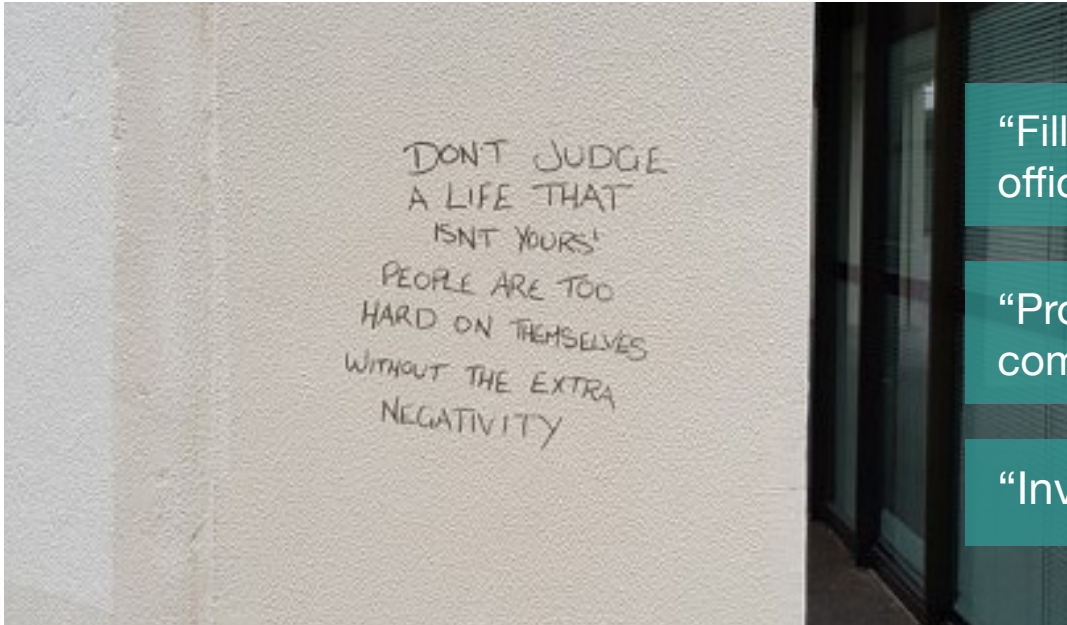 DONT JUDGE
A LIFE THAT
ISNT YOURS'
PEOPLE ARE TOO
HARD ON THEMSELVES
WITHOUT THE EXTRA
NEGATIVITY
“Fill
“
“